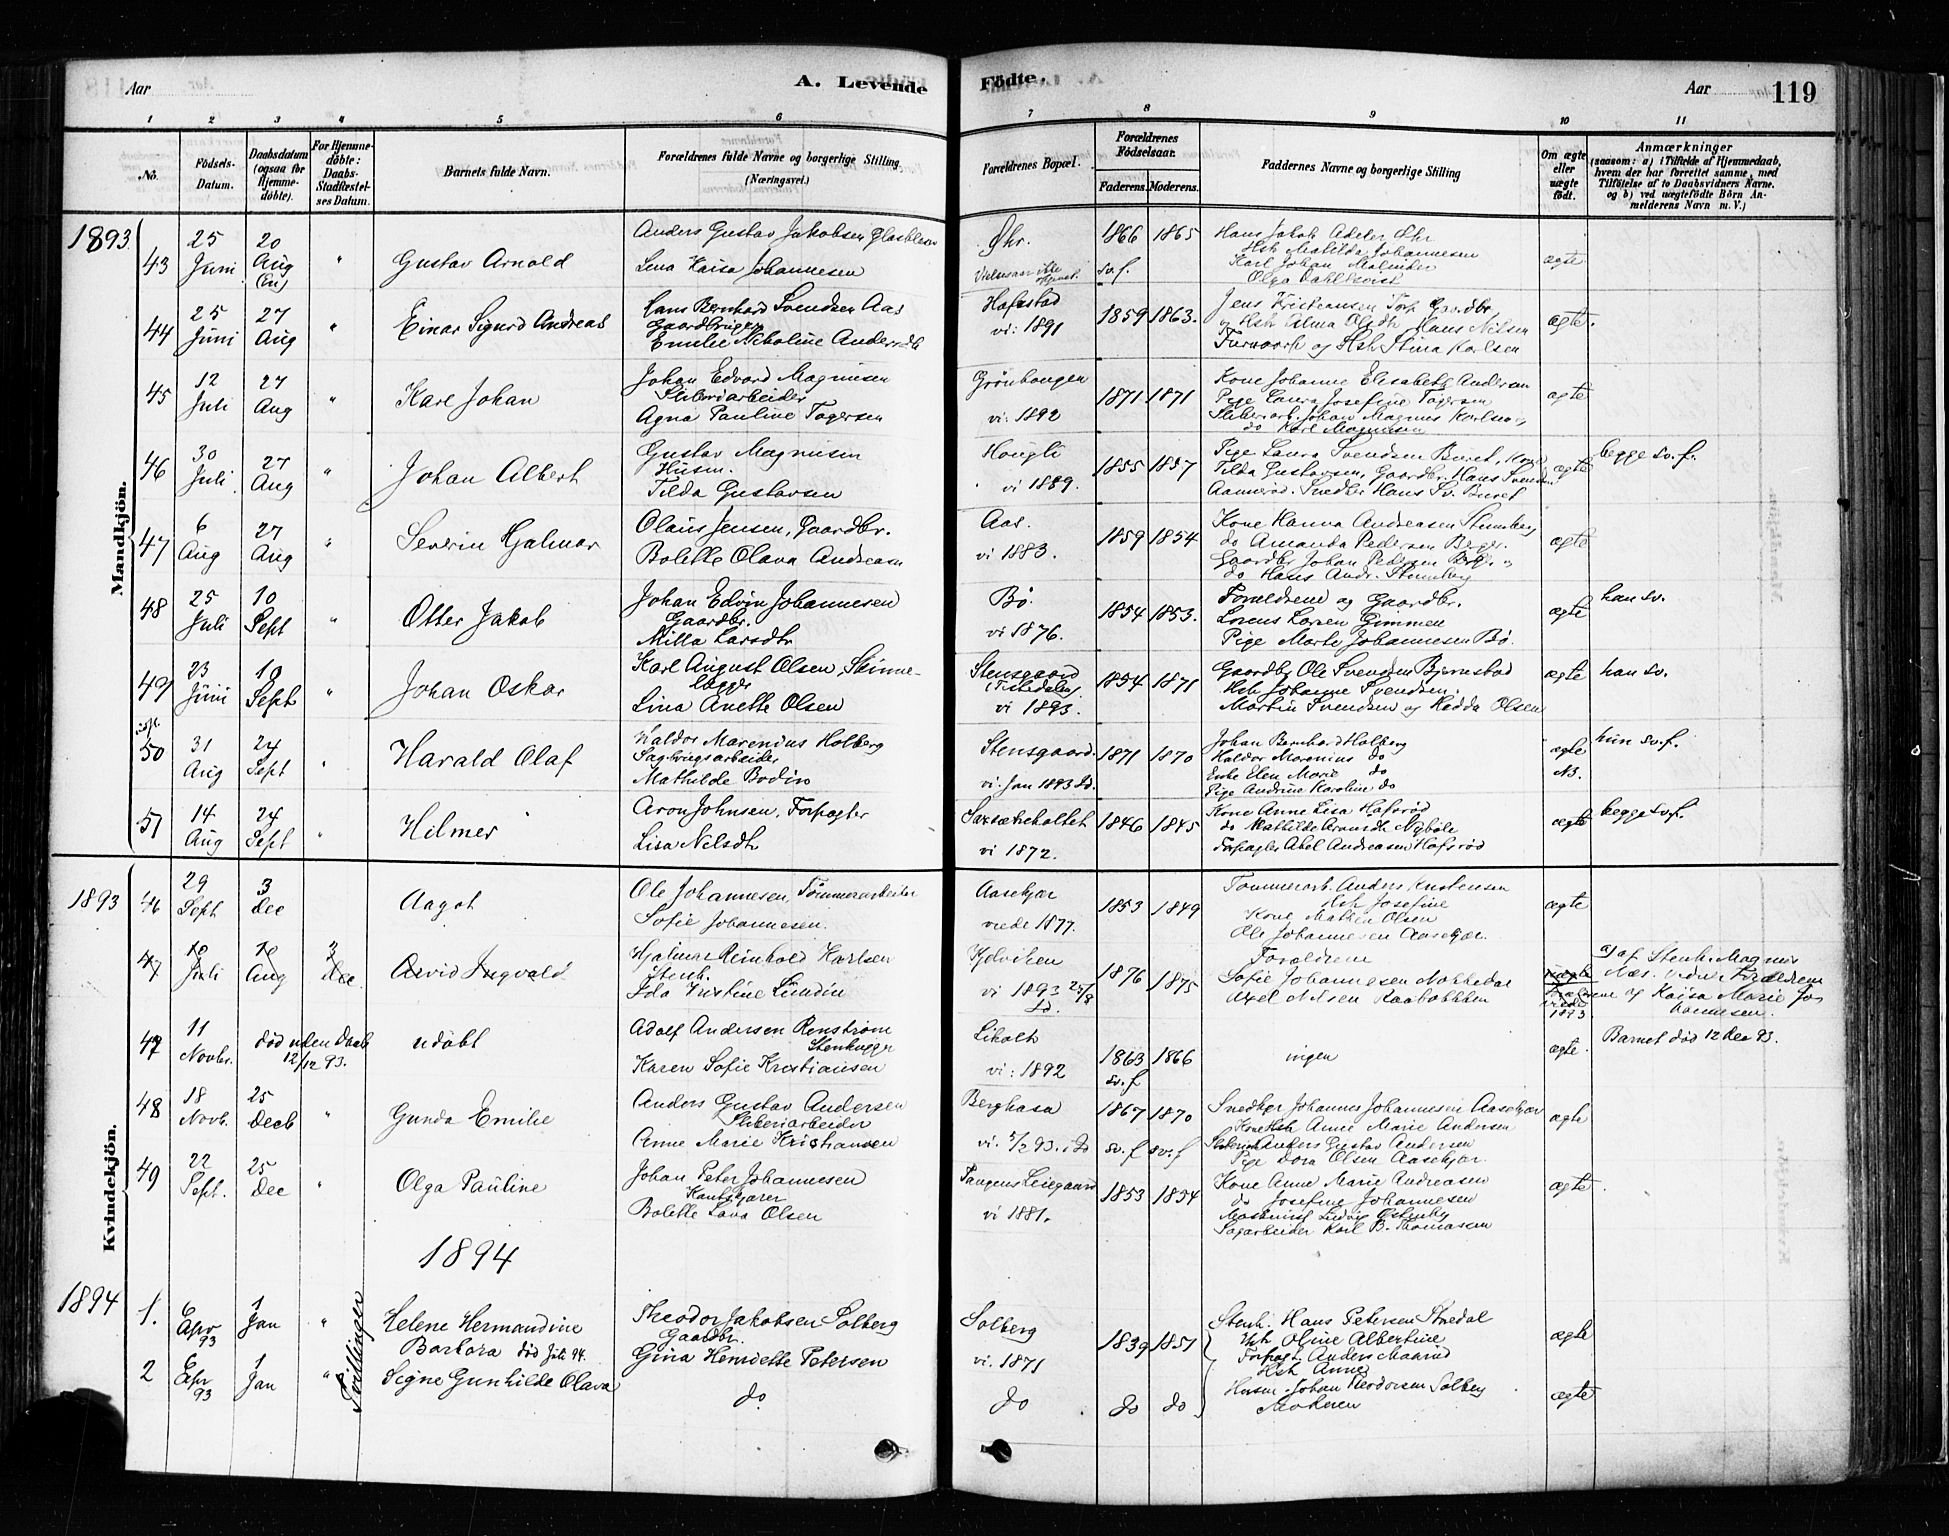 Aar
A. Levende
Födte.
Aar
119
1 2 3 4 5 6 7 8 9 10 11
No.
Födsels-Datum.
Daabsdatum (ogsaa for Hjemmedöbte).
For Hjemmedöbte: Daabs-Stadfæstelses Datum.
Barnets fulde Navn.
Forældrenes fulde Navne og borgerlige Stilling (Næringsvei.)
Forældrenes Bopæl.
Forældrenes Födselsaar.
Faderens. Moderens.
Faddernes Navne og borgerlige Stilling
Om ægte eller uægte födt.
Anmærkninger
(saasom: a) i Tilfælde af Hjemmedaab, hvem der har forrettet samme, med Tilföielse af to Daabsvidners Navne. og b) ved uægtefödte Börn Anmelderens Navn m. V.)
Mandkjön.
1893
43 25 Juni 20 Aug " Gustav Arnold
Anders Gustav Jakobsen Glasblæser
Lena Kaisa Johannesen
Øhr. 1866 1865 sv.f.
Hans Jakob Adeler Øhr
Hst Matilda Johannesen
Karl Johan
Olga Dahlkvist
ægte
44 25 Juni 27 Aug " Einar Sigurd Andreas
Hans Bernhard Svendsen Aas
Gaardbruger
Emilie Nikoline Andersdt
Hafstad
vi: 1891
1859 1863.
Jens Kristiansen Torp Gaardbr
Hst Alma Olsdt Hans Nilsen
og Hst Stina Karlsen
ægte.
45 12 Juli 27 Aug " Karl Johan
Johan Edvard Magnusen
Sliberiarbeider
Agna Pauline Tagersen
Grønhougen
vi: 1892
1871 1871
Kone Johanne Elisabeth Andersen
Pige Laura Josefine Tagersen
Sliberiarb. Johan Magnus Karlsen
do Karl Magnusen
ægte
46 30 Juli 27 Aug " Johan Albert
Gustav Magnusen
Husm.
Tilda Gustavsen
Hougli
vi 1889.
1855 1857
Pige Laura Svendsen Buret, Kone
Tilda Gustavsen, Gaardbr. Hans Svendsen
Aannerød. Snedker Hans Sv. Buret
ægte
begge sv.f.
47 6 Aug 27 Aug " Severin Hjalmar
Olaus Jensen, Gaardbr.
Bolette Olava Andreasen
Aas.
vi 1883.
1859 1854
Kone Hanna Andreasen Stumberg
do Amanda Pedersen Berger.
Gaardbr Johan Pedersen
do Hans Andr. Stumberg
ægte
48 25 Juli 10 Sept " Otter Jakob
Johan Edvin Johannesen
Gaardbr.
Milla Larsdtr
Bø.
vi 1876.
1854 1853.
Forældrene og Gaardbr.
Lorens Larsen Gimmen
Pige Marte Johannesen Bø.
ægte
han sv.
49 23 Juni 10 Sept " Johan Oskar
Karl August Olsen, Skinnelægger
Lina Anette Olsen
Stensgaard
(Tistedalen)
vi 1893.
1854 1871
Gaardbr Ole Svendsen Bjørnstad
Hst Johanne Svendsen.
Martin Svendsen og Hedda Olsen
ægte
han sv.
50 31 Aug 24 Sept " Harald Olaf
Haldor Marenius Holberg
Sagbrugsarbeider
Mathilde Bodin
Stensgaard.
vi. Jan 1893
1871 1870
Johan Bernhard Holberg
Haldor Marenius do
Enke Elen Marie do
Pige Andrine Karoline do
ægte
hun sv.f.
51 14 Aug 24 Sept " Hilmer
Aron Johnsen, Forpagter
Lisa Nilsdt
vi 1872.
1846 1845
Kone Anne Lisa Hafsrød
do Mathilde Nybøle
Forpagter Abel Andreasen Hafsrød
ægte
begge sv.f.
Kvindekjön.
1893
46 29 Sept 3 Dec Aagot
Ole Johannesen Tömmerarbeider
Sofie Johannesen.
Aasekjær
viede 1877.
1853 1849
Tømmerarb. Anders Kristensen
Hst Josefine
Kone Mathea Olsen
Ole Johannesen Aasekjær.
ægte
47 10 Juli 10 Aug 3 Dec Arvid Ingvald
Hjalmar Reinhold Karlsen
Stenh.
Ida Kristine Lundin
vi 1893 25/8
1876 1875
Forældrene
Sofie Johannesen Nokkedal
Axel Nilsen
a) af Stenh. Magnus
Næs. vidne Forældrene
og Kaisa Marie Johannesen.
47 11 Novbr. død uden Daab 12/12 93. udöbt
Adolf Andersen Renström
Stenhugger
Karen Sofie Kristiansen
Liholt
vi: 1892
1863 1866
sv.f
ingen
ægte.
Barnet død 12 Dec 93.
48 18 Novb. 25 Decb " Gunda Emilie
Anders Gustav Andersen
Sliberiarbeider
Anne Marie Kristiansen
Berghasa
vi. 5/2 93.
1867 1870
sv.f sv.f
Snedker Johannes Johannesen Aasekjær
Kone Anne Marie Andersen
Anders Gustav Andersen
Pige Dora Olsen Aasekjær.
ægte
49 22 Sept. 25 Dec " Olga Pauline
Johan Peter Johannesen
Kantskjærer
Bolette Lava Olsen
Tangens Leiegaard
vi 1881.
1853 1854
Kone Anne Marie Andreasen
do Josefine Johannesen
Maskinist Ludvig Østenby
Sagarbeider Karl B. Thomasen
ægte
1894
1894
1. 6 Apr 93 1 Jan " Helene Hermandine
Barbara død Juli 94.
Theodor Jakobsen Solberg
Gaardbr.
Gina Henriette Petersen
Solberg
vi. 1871
1839 1851
Stenh. Hans Petersen
Hst Oline Albertine
Forpagt. Anders
Hst Anne
ægte
Tvillinger
2 6 Apr 93 1 Jan " Signe Gunhilde Olava
do
do
do do
Johan Theodorsen Solberg
Moderen
ægte